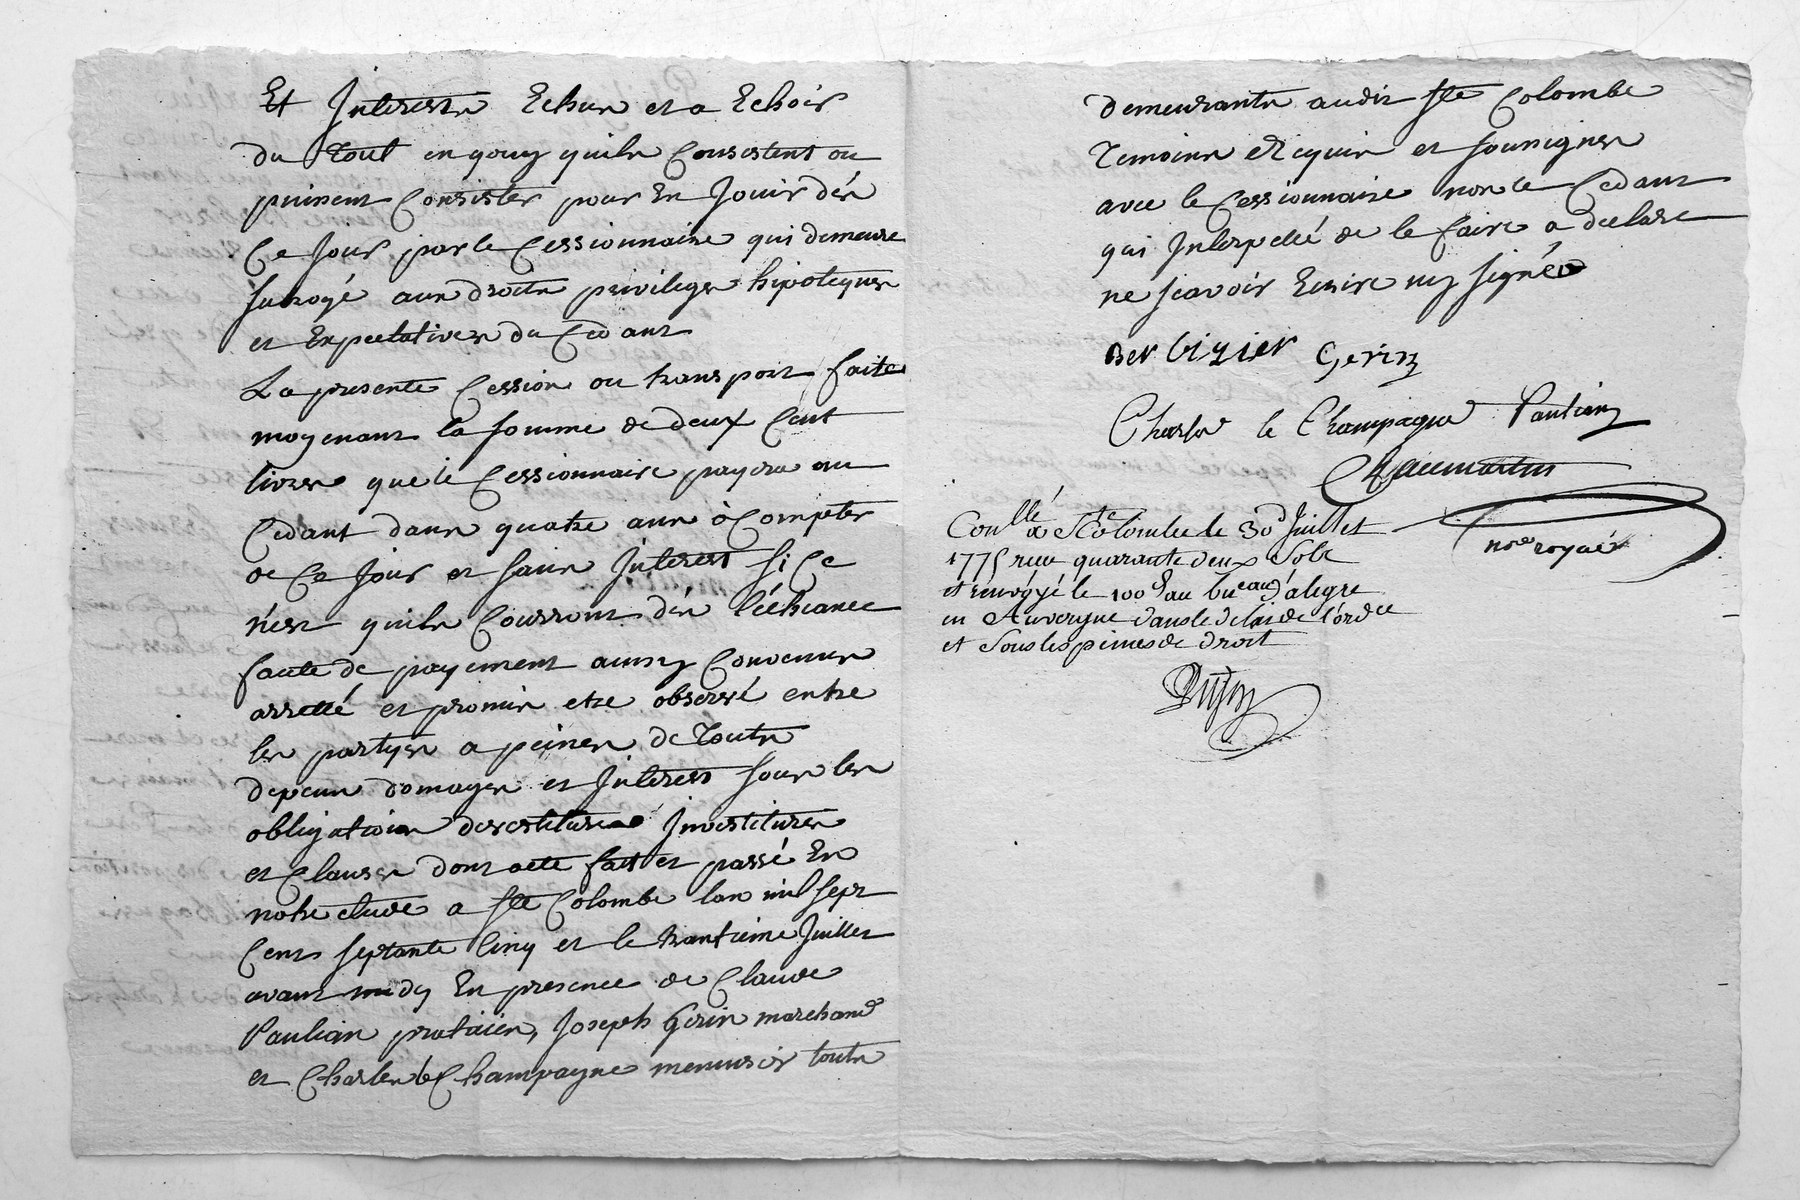 Et Interests Echus et a Echoir
du Tout en quoy quils Consistent ou
puissent Consister pour En Jouir dés
Ce Jour par le Cessionnaire qui demeure
subrogé aux droits privileges hipoteques
et Expectatives du Cedant
La presente Cession ou transport faite
moyenant la somme de deux Cent
livres que le Cessionnaire payera au
Cedant dans quatre ans à Compter
de Ce Jour et sans Interest si Ce
n'est quils Courront dés l'échéance
faute de payement aussy Convenus
arretté et promis etre observé entre
les partyes a peines de Touts
depens domages et Interests sous les
obligations devestitures Investitures
et Clauses dont acte fait et passé En
notre etude a Ste Colombe lan mil sept
Cent septante Cinq et le trentieme Juillet
avant midy En presence de Claude
Paulian praticien, Joseph Gerin marchand
et Charles le Champagne menusier touts
demeurants audit Ste Colombe
Temoins Requis et soussignes
avec le Cessionnaire non le Cedant
qui Interpellé de le faire a declaré
ne scavoir Ecrire ny signer
Berlizier Gerin
Charle le Champagne Paulian
not.e royal
Conllé a Ste Colombe le 30d Juillet
1775 reçu quarante deux Sols
et renvoyé le 100d au bueau d'alegre
en Auvergne dans le delai de l'ord.ce
et sous les peines de droit